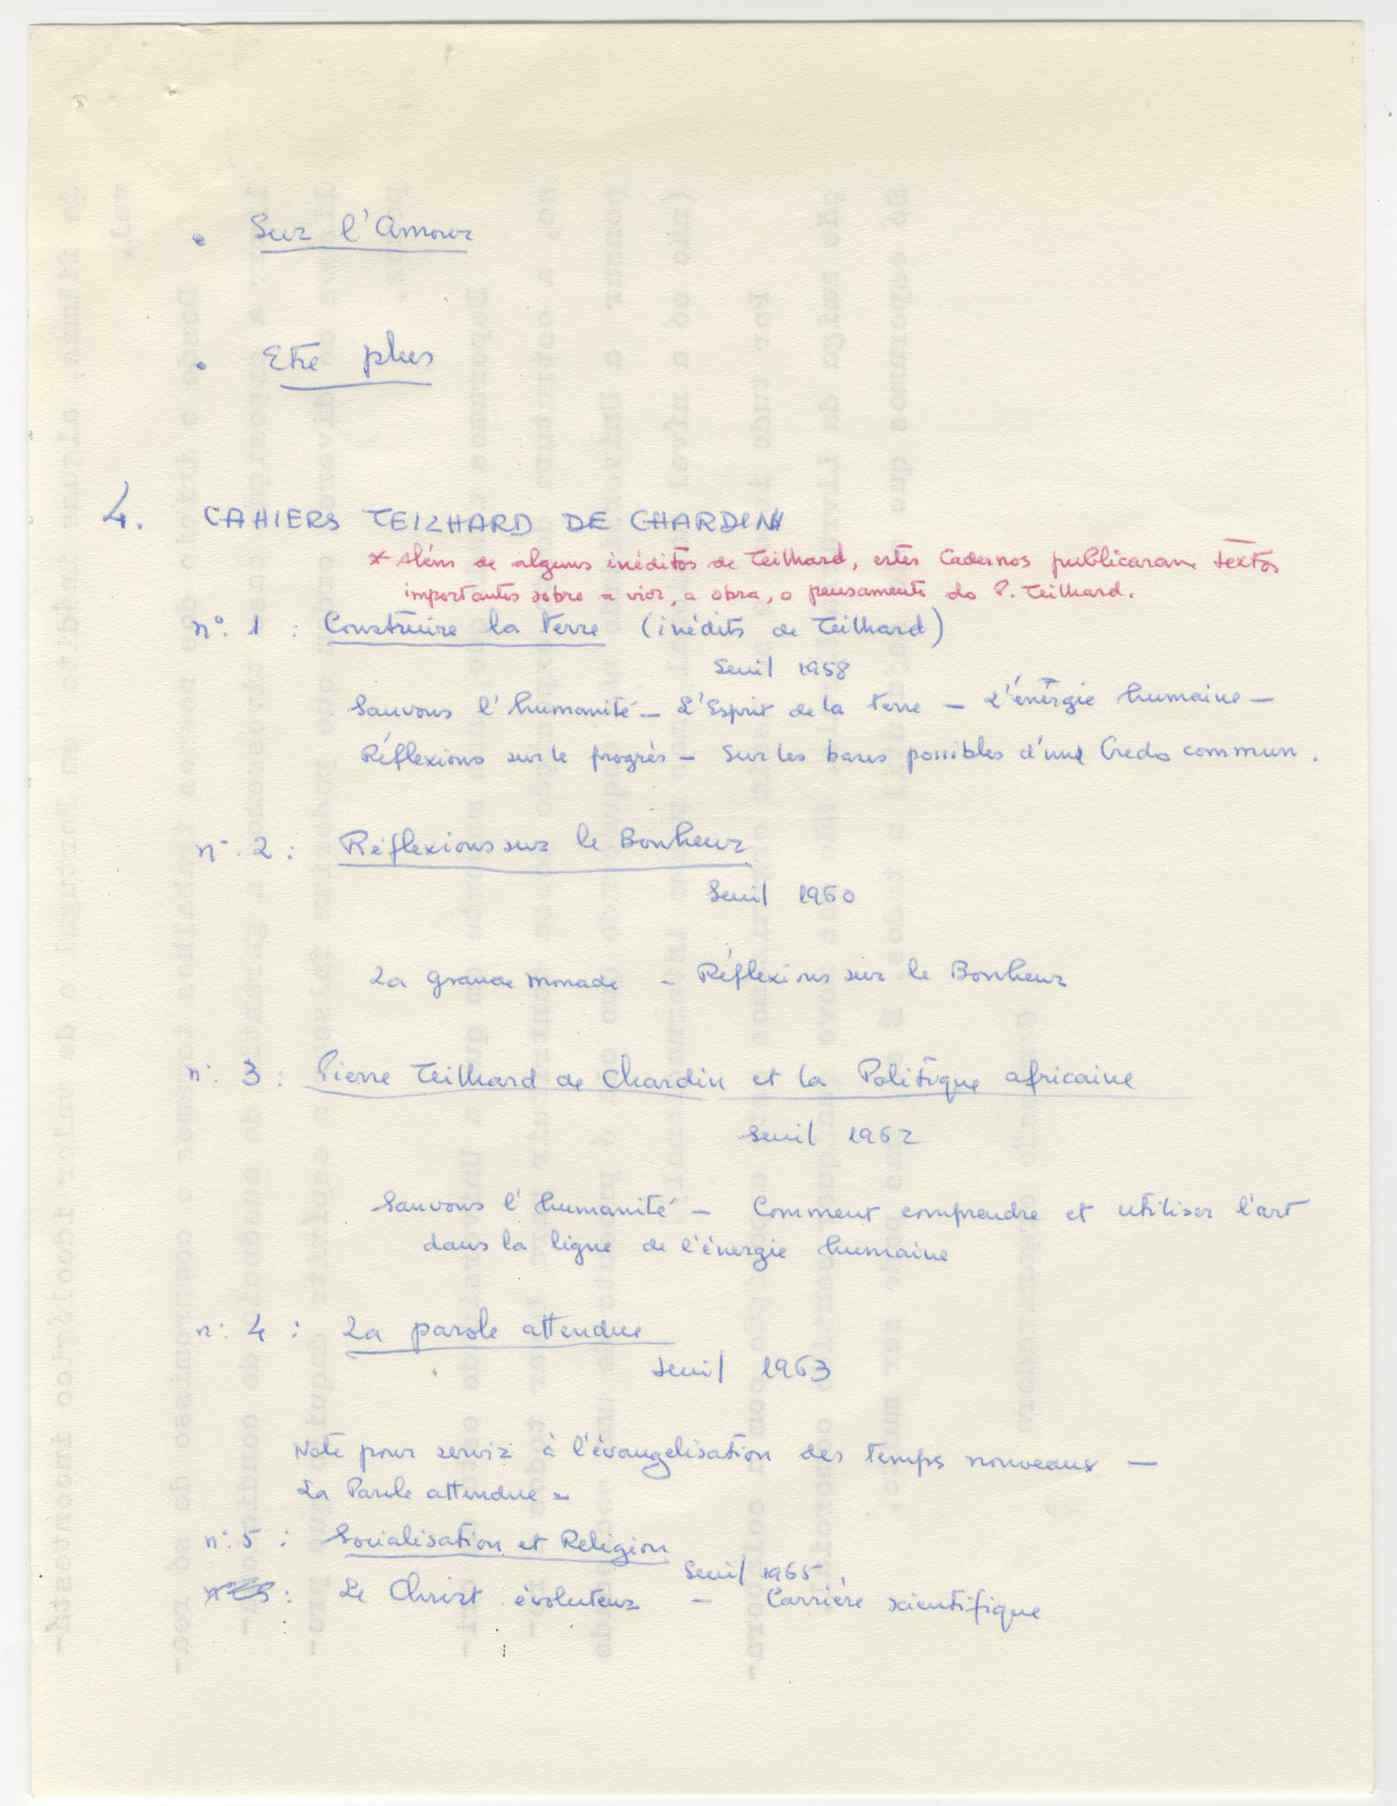 • Sur l'Amour
• Etre plus
4. CAHIERS TEILHARD DE CHARDIN
* Além de alguns inéditos de Teilhard, estes Cadernos publicaram textos
importantes sobre a vida, a obra, o pensamento do P. Teilhard.
nº. 1 : Construire la terre (inédits de Teilhard)
Seuil 1958
Sauvons l'humanité — L'Esprit de la terre — L'énergie humaine —
Réflexions sur le progrès — Sur les bases possibles d'une Credo commun.
nº. 2 : Réflexions sur le Bonheur
Seuil 1960
La grande monade - Réflexions sur le Bonheur
nº. 3 : Pierre Teilhard de Chardin et la Politique africaine
Seuil 1962
Sauvons l'humanité — Comment comprendre et utiliser l'art
dans la ligne de l'énergie humaine
nº. 4 : La parole attendue
Seuil 1963
Note pour servir à l'évangelisation des temps nouveaux —
La Parole attendue —
nº. 5 : Socialisation et Religion
Seuil 1965
: Le Christ évoluteur — Carrière scientifique